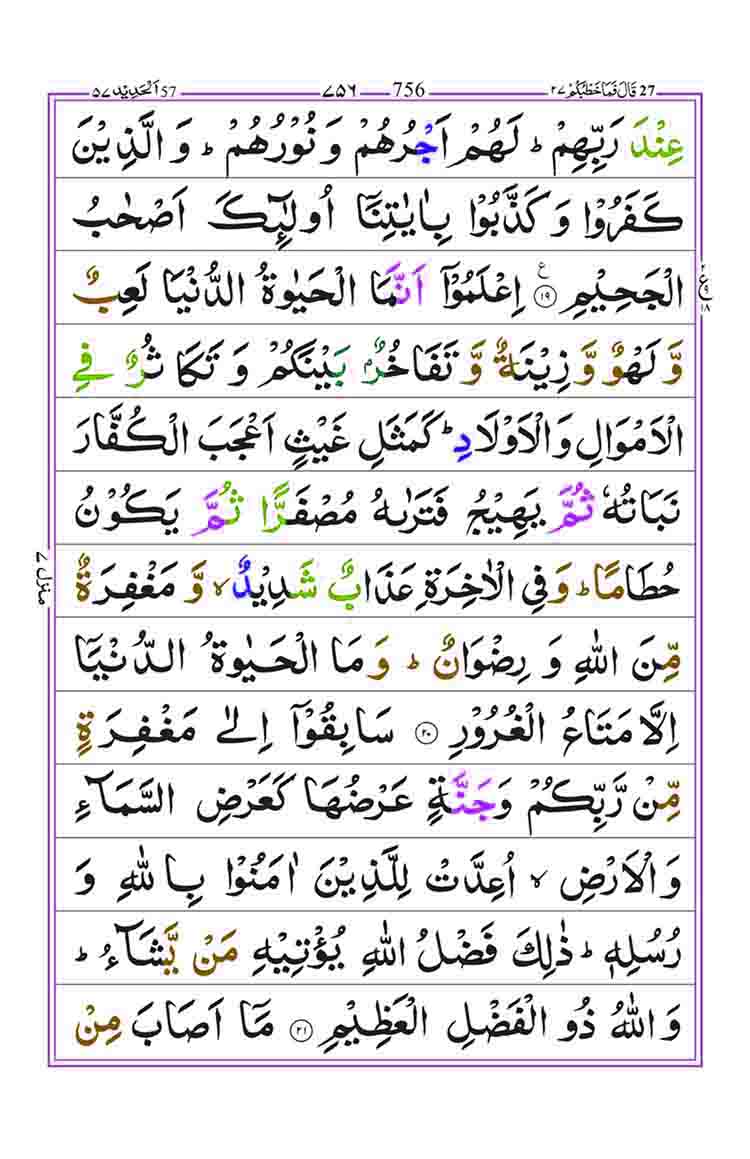 27 قَالَ فَمَا خَطْبُكُمْ ٢٧ 756 ٧٥٦ 57 اَلْحَدِيْد ٥٧
عِنْدَ رَبِّهِمْ ؕ لَهُمْ اَجْرُهُمْ وَ نُوْرُهُمْ ؕ وَ الَّذِيْنَ
كَفَرُوْا وَ كَذَّبُوْا بِاٰيٰتِنَاۤ اُولٰٓئِكَ اَصْحٰبُ
الْجَحِيْمِ ۧ ﴿۱۹﴾ اِعْلَمُوْۤا اَنَّمَا الْحَيٰوةُ الدُّنْيَا لَعِبٌ
وَّ لَهْوٌ وَّ زِيْنَةٌ وَّ تَفَاخُرٌۢ بَيْنَكُمْ وَ تَكَاثُرٌ فِي
الْاَمْوَالِ وَ الْاَوْلَادِ ؕ كَمَثَلِ غَيْثٍ اَعْجَبَ الْكُفَّارَ
نَبَاتُهٗ ثُمَّ يَهِيْجُ فَتَرٰىهُ مُصْفَرًّا ثُمَّ يَكُوْنُ
حُطَامًا ؕ وَ فِي الْاٰخِرَةِ عَذَابٌ شَدِيْدٌ ۙ وَّ مَغْفِرَةٌ
مِّنَ اللّٰهِ وَ رِضْوَانٌ ؕ وَ مَا الْحَيٰوةُ الدُّنْيَاۤ
اِلَّا مَتَاعُ الْغُرُوْرِ ﴿۲۰﴾ سَابِقُوْۤا اِلٰى مَغْفِرَةٍ
مِّنْ رَّبِّكُمْ وَ جَنَّةٍ عَرْضُهَا كَعَرْضِ السَّمَآءِ
وَ الْاَرْضِ ۙ اُعِدَّتْ لِلَّذِيْنَ اٰمَنُوْا بِاللّٰهِ وَ
رُسُلِهٖ ؕ ذٰلِكَ فَضْلُ اللّٰهِ يُؤْتِيْهِ مَنْ يَّشَآءُ ؕ
وَ اللّٰهُ ذُو الْفَضْلِ الْعَظِيْمِ ﴿۲۱﴾ مَاۤ اَصَابَ مِنْ
٢ ع ٩ ١٨
منزل ٧